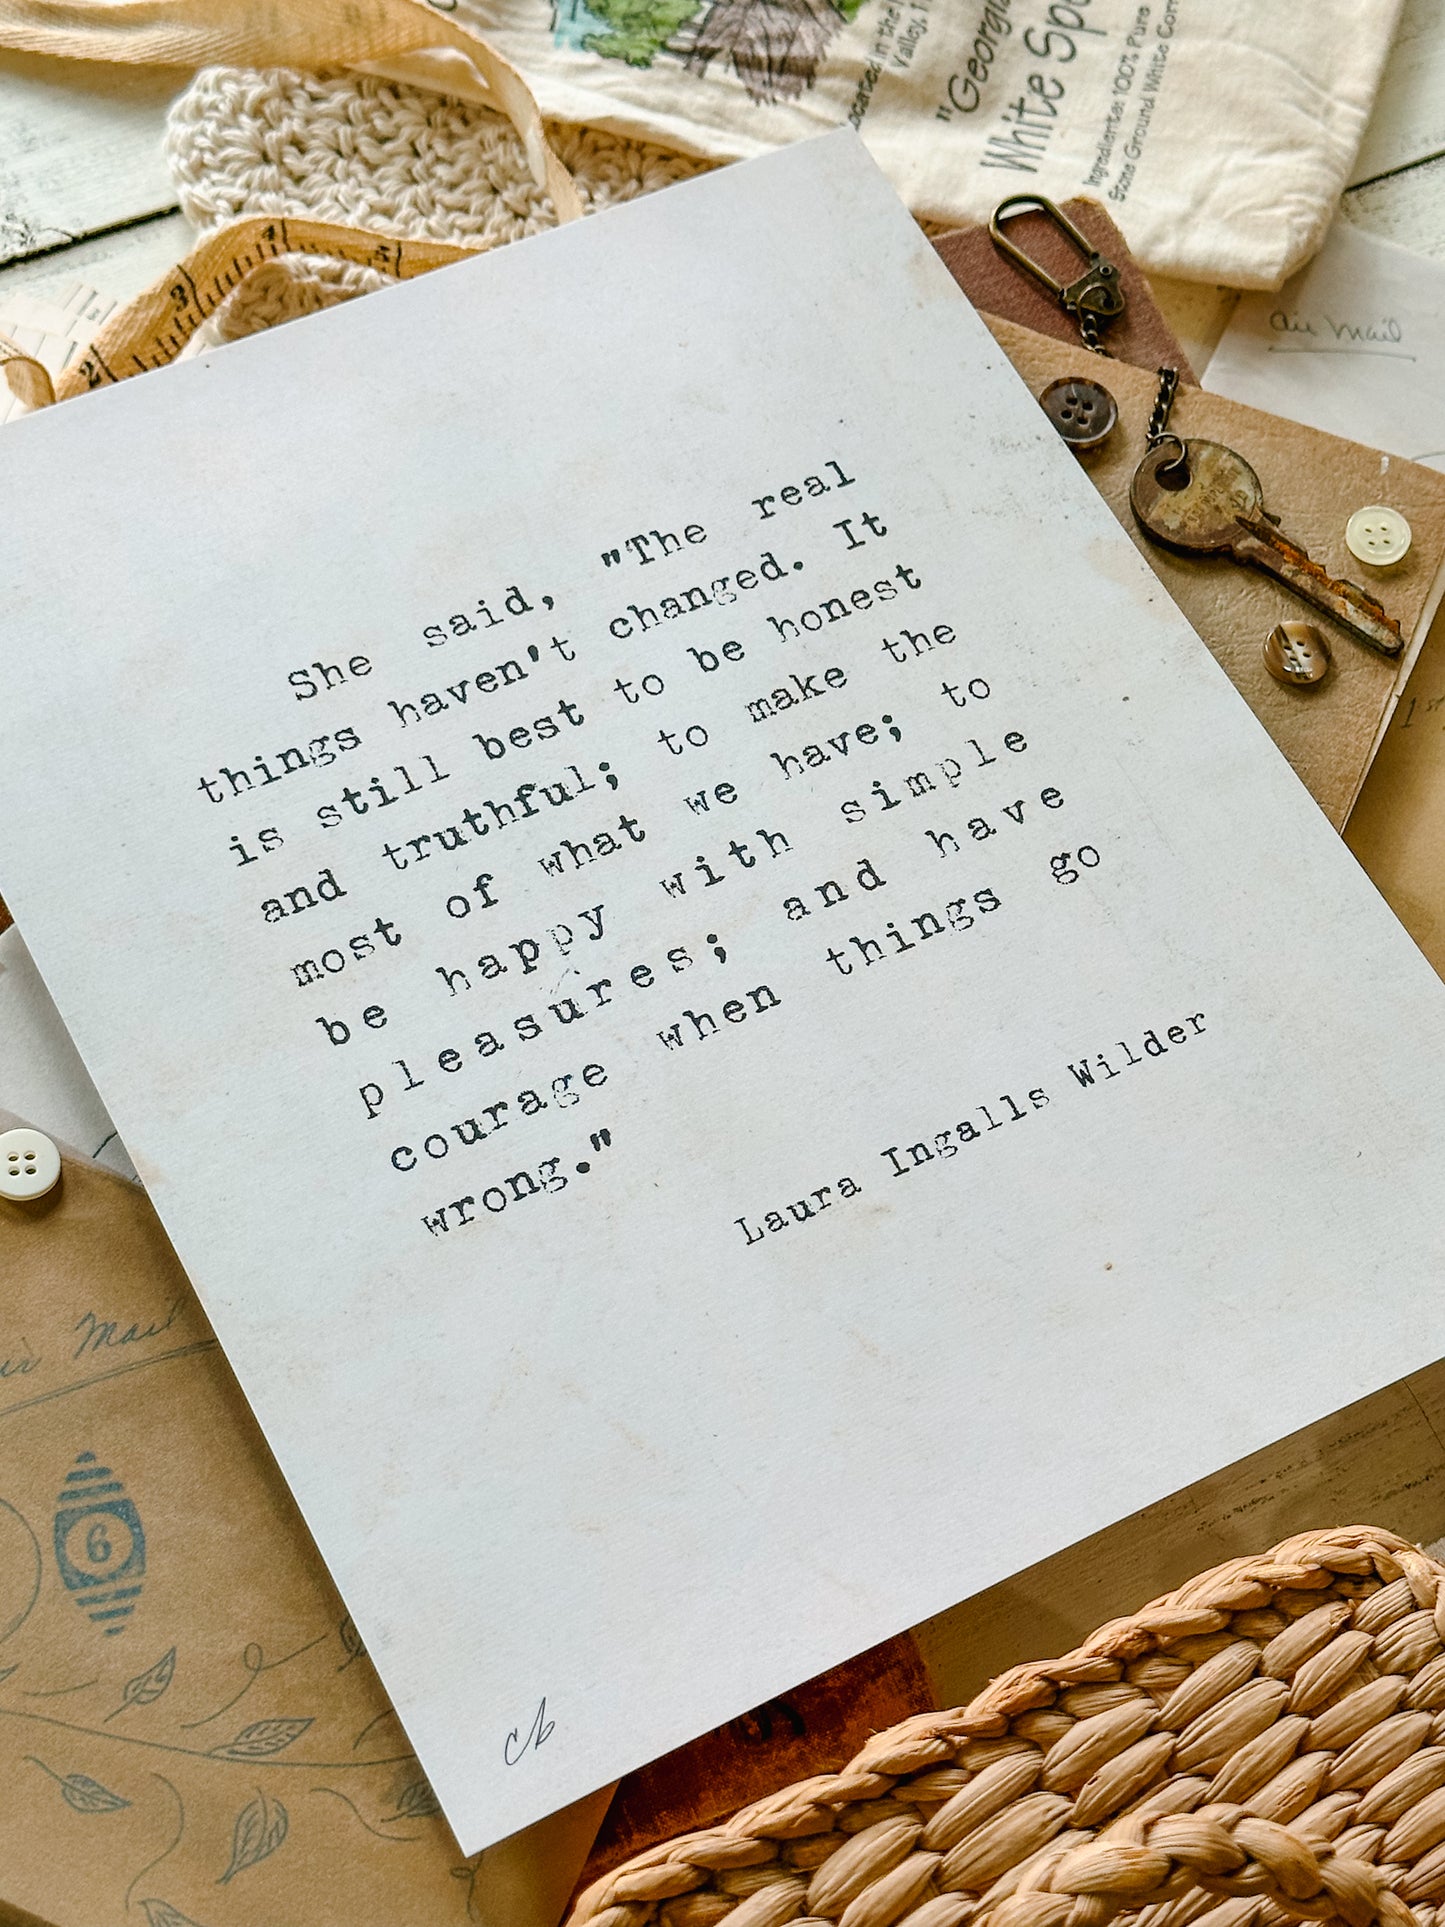 "Georgia
White Sp
Ingredients: 100% Pure
Stone Ground White Cor
Located in the
Valley,
4
5
3
2
air mail
She said, "The real
things haven't changed. It
is still best to be honest
and truthful; to make the
most of what we have; to
be happy with simple
pleasures; and have
courage when things go
wrong."
Laura Ingalls Wilder
Mail
6
cb